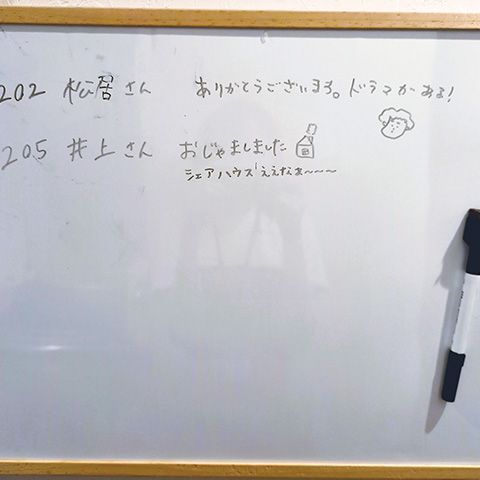 202 松居さん ありがとうございます。ドラマがある!
205 井上さん おじゃましました
シェアハウスええなぁ〜〜〜〜